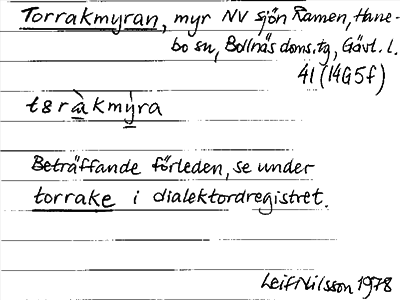 Torrakmyran, myr NV sjön Ramen, Hane-
bo sn, Bollnäs doms.tg, Gävl. l.
41 (14G5f)
tɜràkmỳra
Beträffande förleden, se under
torrake i dialektordregistret.
Leif Nilsson 1978